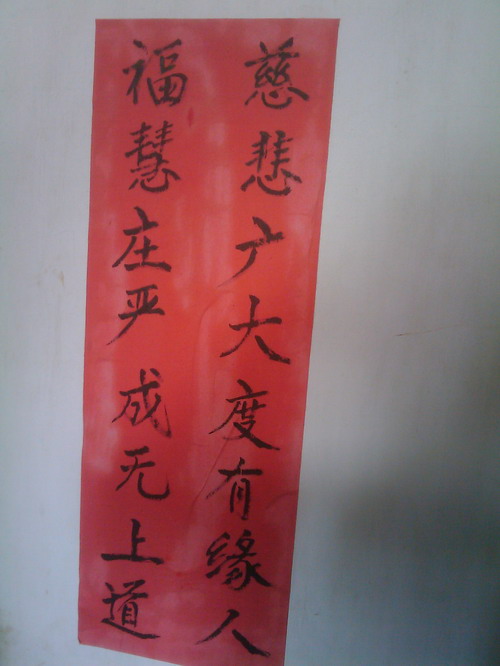 慈悲广大度有缘人
福慧庄严成无上道